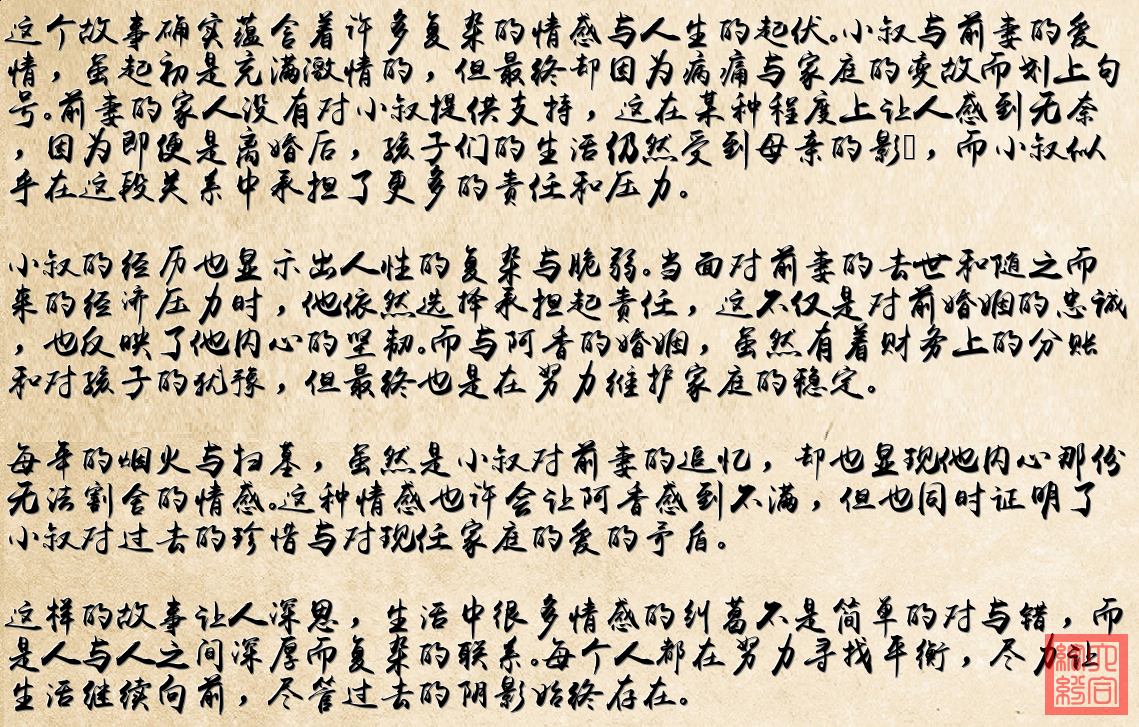 这个故事确实蕴含着许多复杂的情感与人生的起伏。小叔与前妻的爱
情，虽起初是充满激情的，但最终却因为病痛与家庭的变故而划上句
号。前妻的家人没有对小叔提供支持，这在某种程度上让人感到无奈
，因为即便是离婚后，孩子们的生活仍然受到母亲的影，而小叔似
乎在这段关系中承担了更多的责任和压力。
小叔的经历也显示出人性的复杂与脆弱。当面对前妻的去世和随之而
来的经济压力时，他依然选择承担起责任，这不仅是对前婚姻的忠诚
，也反映了他内心的坚韧。而与阿香的婚姻，虽然有着财务上的分账
和对孩子的犹豫，但最终也是在努力维护家庭的稳定。
每年的烟火与扫墓，虽然是小叔对前妻的追忆，却也显现他内心那份
无法割舍的情感。这种情感也许会让阿香感到不满，但也同时证明了
小叔对过去的珍惜与对现任家庭的爱的矛盾。
这样的故事让人深思，生活中很多情感的纠葛不是简单的对与错，而
是人与人之间深厚而复杂的联系。每个人都在努力寻找平衡，尽力让
生活继续向前，尽管过去的阴影始终存在。